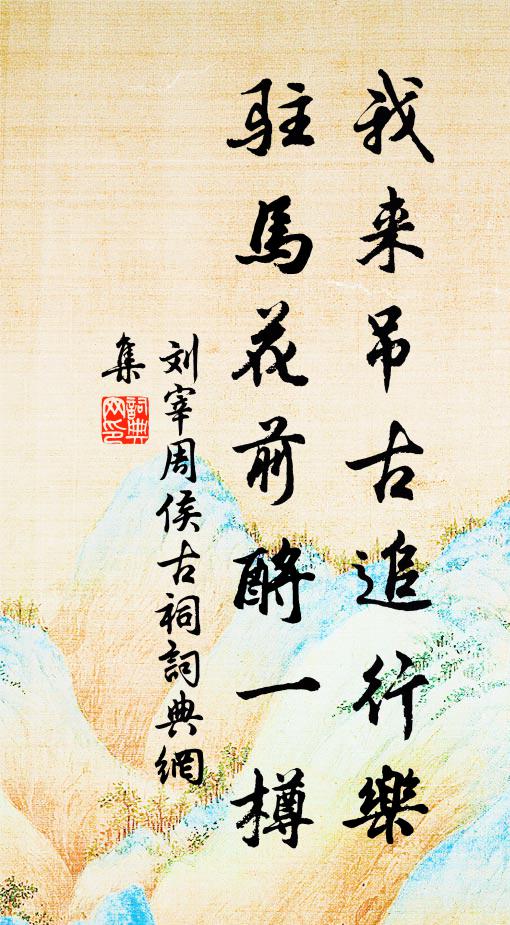 我来吊古追行樂
駐馬花前酹一樽
刘宰周侯古祠詞典網
集
詞典
网印